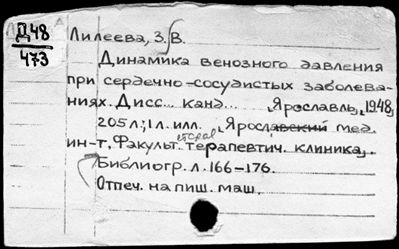 Д48
473
Лилеева, З. В.
Динамика венозного давления
при сердечно-сосудистых заболева-
ниях. Дисс... канд... Ярославль, 1948,
205 л; 1 л. илл. Ярославский мед.
ин-т, Факульт. терапевтич. клиника.
Библиогр. л. 166-176.
Отпеч. на пиш. маш.